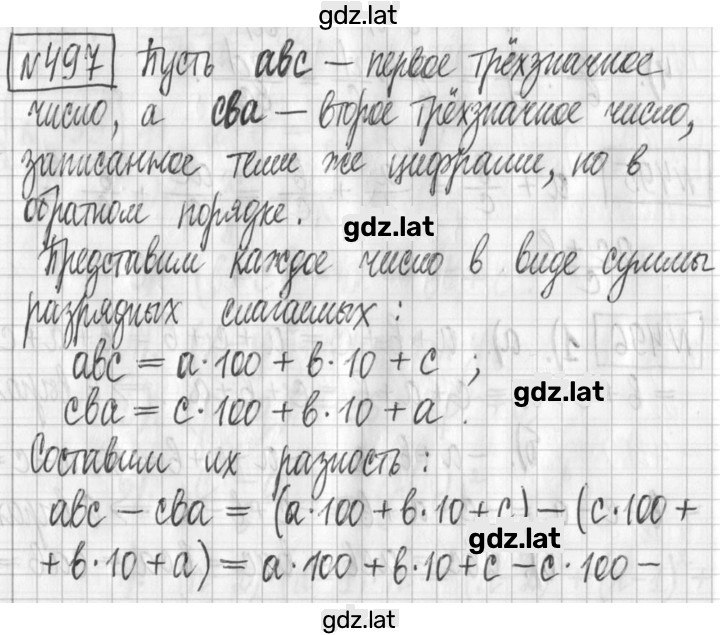 gdz.lat
№497 Пусть авс – первое трёхзначное
число, а сва – второе трёхзначное число,
записанное теми же цифрами, но в
обратном порядке.
gdz.lat
Представим каждое число в виде суммы
разрядных слагаемых:
авс = а·100 + в·10 + с ;
gdz.lat
сва = с·100 + в·10 + а .
Составим их разность:
авс – сва = (а·100 + в·10 + с) – (с·100 +
gdz.lat
+ в·10 + а) = а·100 + в·10 + с – с·100 –
gdz.lat